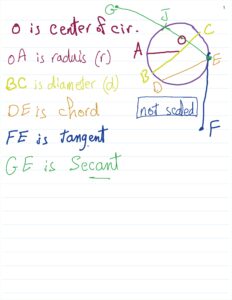 1
G
J
C
O is center of cir.
O
A
E
OA is raduis (r)
B
BC is diameter (d)
D
DE is chord
not scaled
FE is tangent
F
GE is Secant